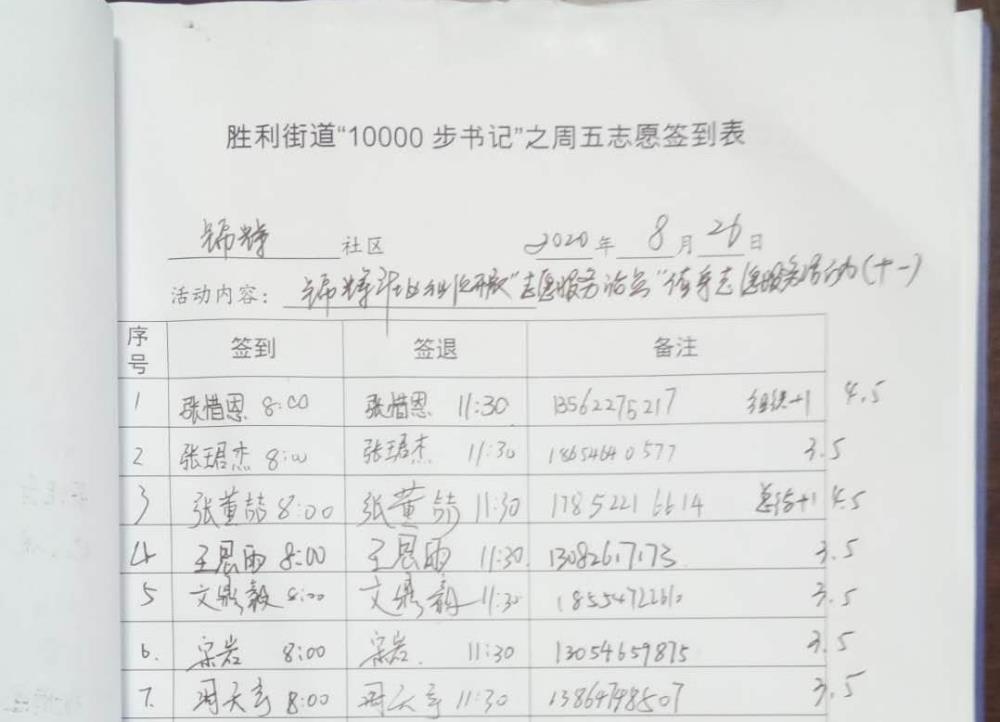 胜利街道“10000 步书记”之周五志愿签到表
锦特 社区 2020 年 8 月 26 日
活动内容： 锦特 志愿服务 志愿服务活动(十一)
序号 签到 签退 备注
1 张惜恩 8:00 张惜恩 11:30 13562275217 组织+1 4.5
2 张珺杰 8:00 张珺杰 11:30 18654640577 3.5
3 张董喆 8:00 张董喆 11:30 17852216614 总结+1 4.5
4 王晨雨 8:00 王晨雨 11:30 13082617173 3.5
5 文鼎毅 8:00 文鼎毅 11:30 3.5
6. 宗岩 8:00 宗岩. 11:30 13054659875 3.5
7. 8:00 11:30 13864748507 3.5